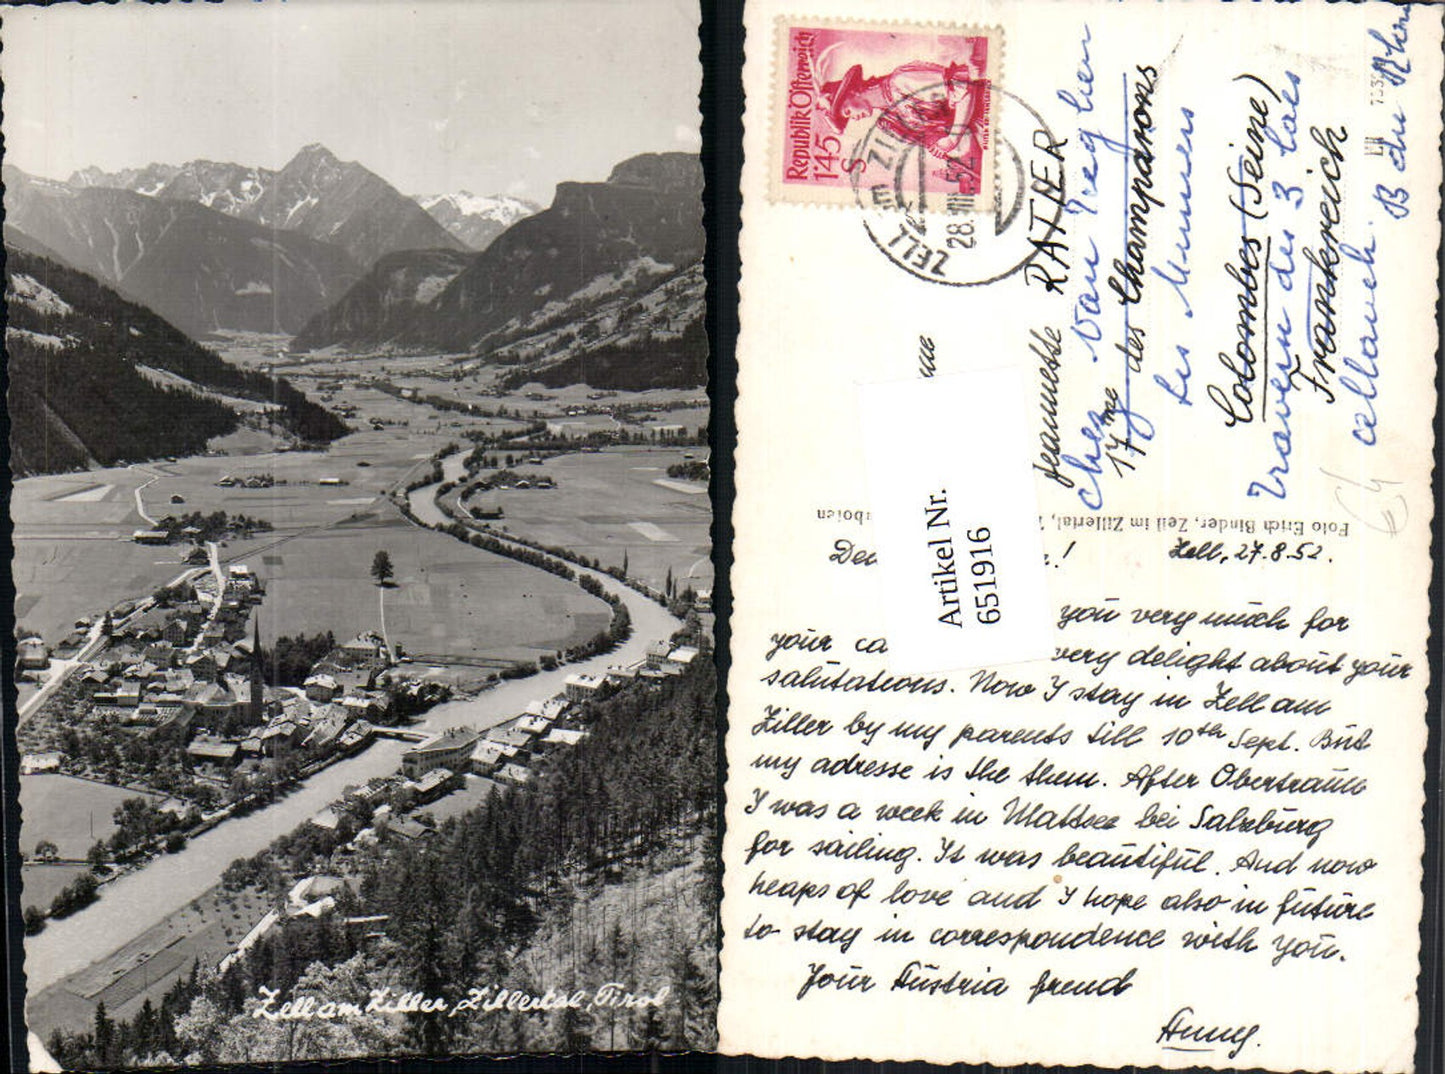 Zell am Ziller, Zillertal, Tirol
Republik Österreich
1'45 S
ZELL am ZILLER
28.VIII.52
Jeannette RATIER
chez
17me des Champarons
Les
Colombes (Seine)
des 3
Frankreich
B du Rhône
Foto Erich Binder, Zell im Zillertal,
Artikel Nr.
651916
Zell, 27.8.52.
you very much for
your ca
very delight about your
salutations. Now I stay in Zell am
Ziller by my parents till 10th Sept. But
my adresse is the them. After Obertraun
I was a week in Mattsee bei Salzburg
for sailing. It was beautiful. And now
heaps of love and I hope also in future
to stay in correspondence with you.
Your Austria freud
Anny.